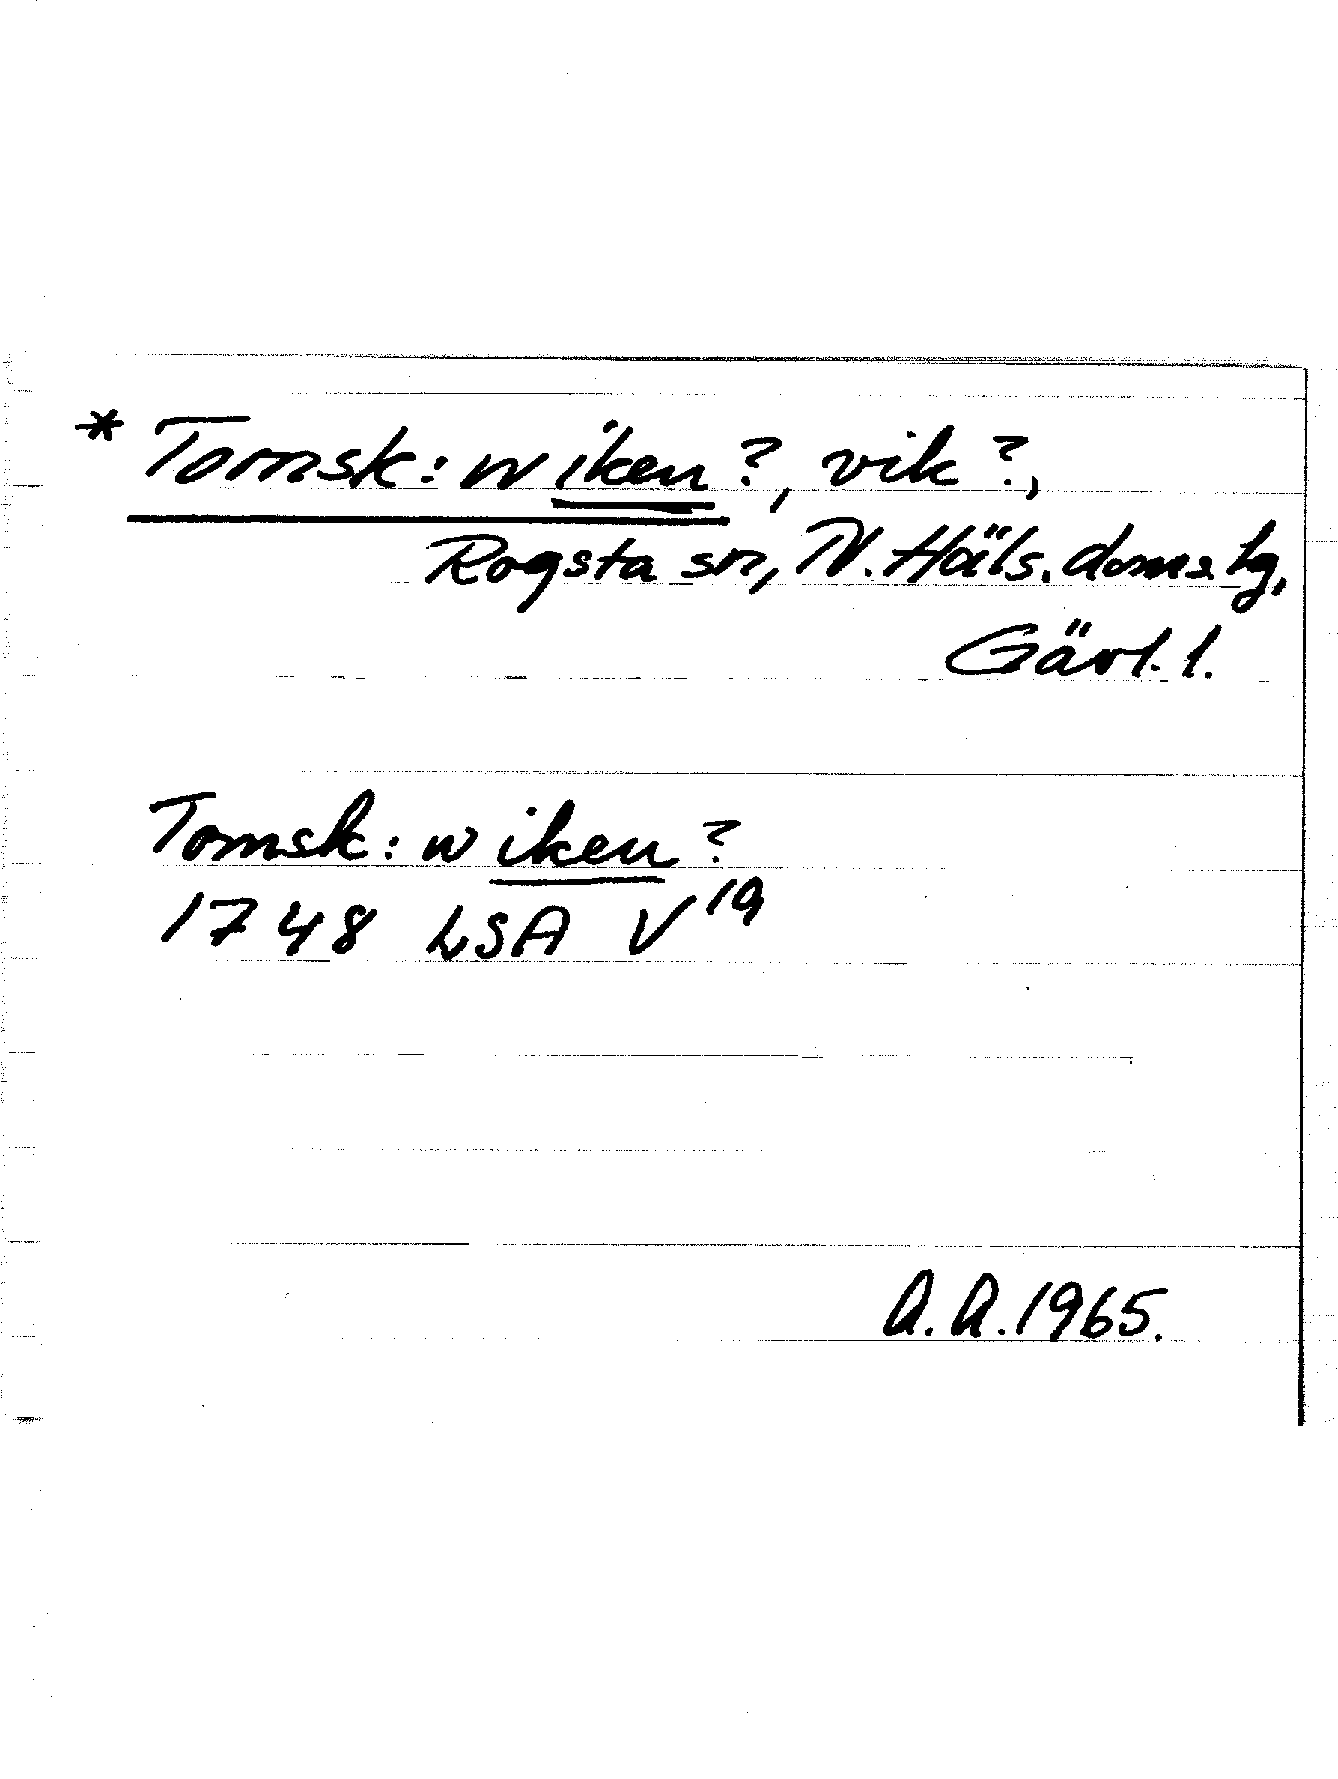 * Tomsk: wiken?, vik?,
Rogsta sn, N. Häls. doms hg,
Gävl. l.
Tomsk: wiken?
1748 LSA V 19
A.A. 1965.